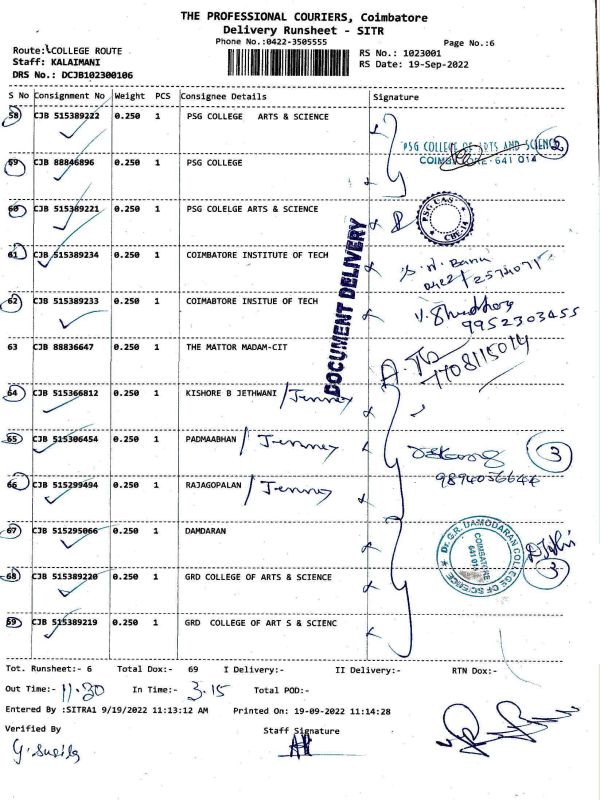 THE PROFESSIONAL COURIERS, Coimbatore
Delivery Runsheet - SITR
Phone No.:0422-3505555
Page No.:6
Route: COLLEGE ROUTE
Staff: KALAIMANI
DRS No.: DCJB102300106
RS No.: 1023001
RS Date: 19-Sep-2022
S No Consignment No Weight PCS Consignee Details Signature
58 CJB 515389222 0.250 1 PSG COLLEGE ARTS & SCIENCE
PSG COLLEGE OF ARTS AND SCIENCE 2
COIMBATORE - 641 014
59 CJB 88846896 0.250 1 PSG COLLEGE
60 CJB 515389221 0.250 1 PSG COLELGE ARTS & SCIENCE
PSG CAS
CBE-14
61 CJB 515389234 0.250 1 COIMBATORE INSTITUTE OF TECH
DOCUMENT DELIVERY
62 CJB 515389233 0.250 1 COIMABTORE INSITUE OF TECH
9952303455
63 CJB 88836647 0.250 1 THE MATTOR MADAM-CIT
64 CJB 515366812 0.250 1 KISHORE B JETHWANI / Jenney
65 CJB 515306454 0.250 1 PADMAABHAN / Jenney
3
66 CJB 515299494 0.250 1 RAJAGOPALAN / Jenney
67 CJB 515295066 0.250 1 DAMDARAN
Dr. G.R. DAMODARAN COLLEGE OF SCIENCE
COIMBATORE
641 014
3
68 CJB 515389220 0.250 1 GRD COLLEGE OF ARTS & SCIENCE
69 CJB 515389219 0.250 1 GRD COLLEGE OF ART S & SCIENC
Tot. Runsheet:- 6 Total Dox:- 69 I Delivery:- II Delivery:- RTN Dox:-
Out Time:- 11.30 In Time:- 3.15 Total POD:-
Entered By :SITRA1 9/19/2022 11:13:12 AM Printed On: 19-09-2022 11:14:28
Verified By Staff Signature